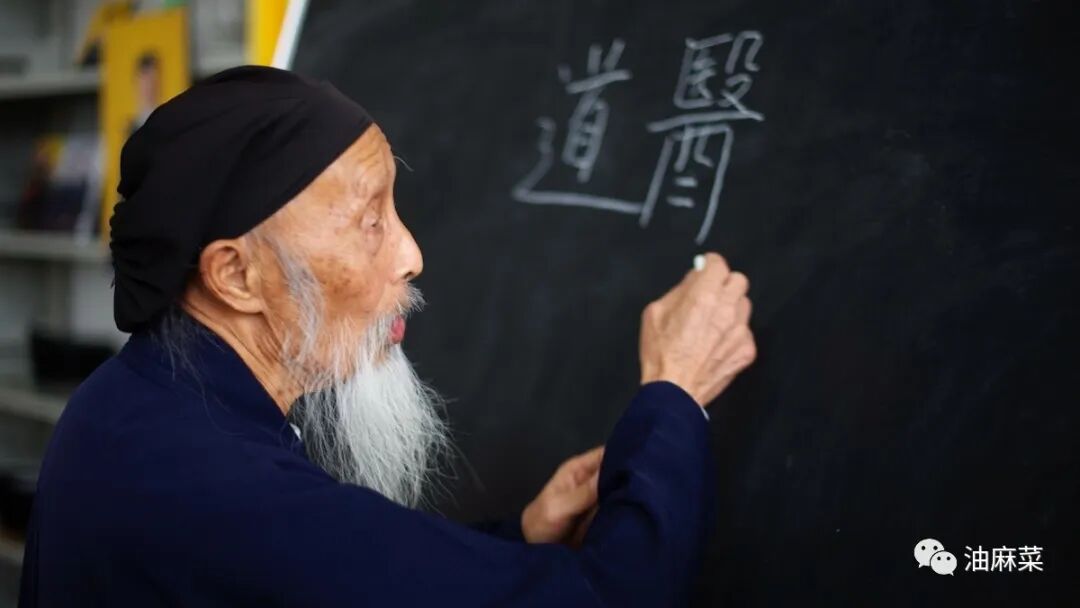 道醫
油麻菜